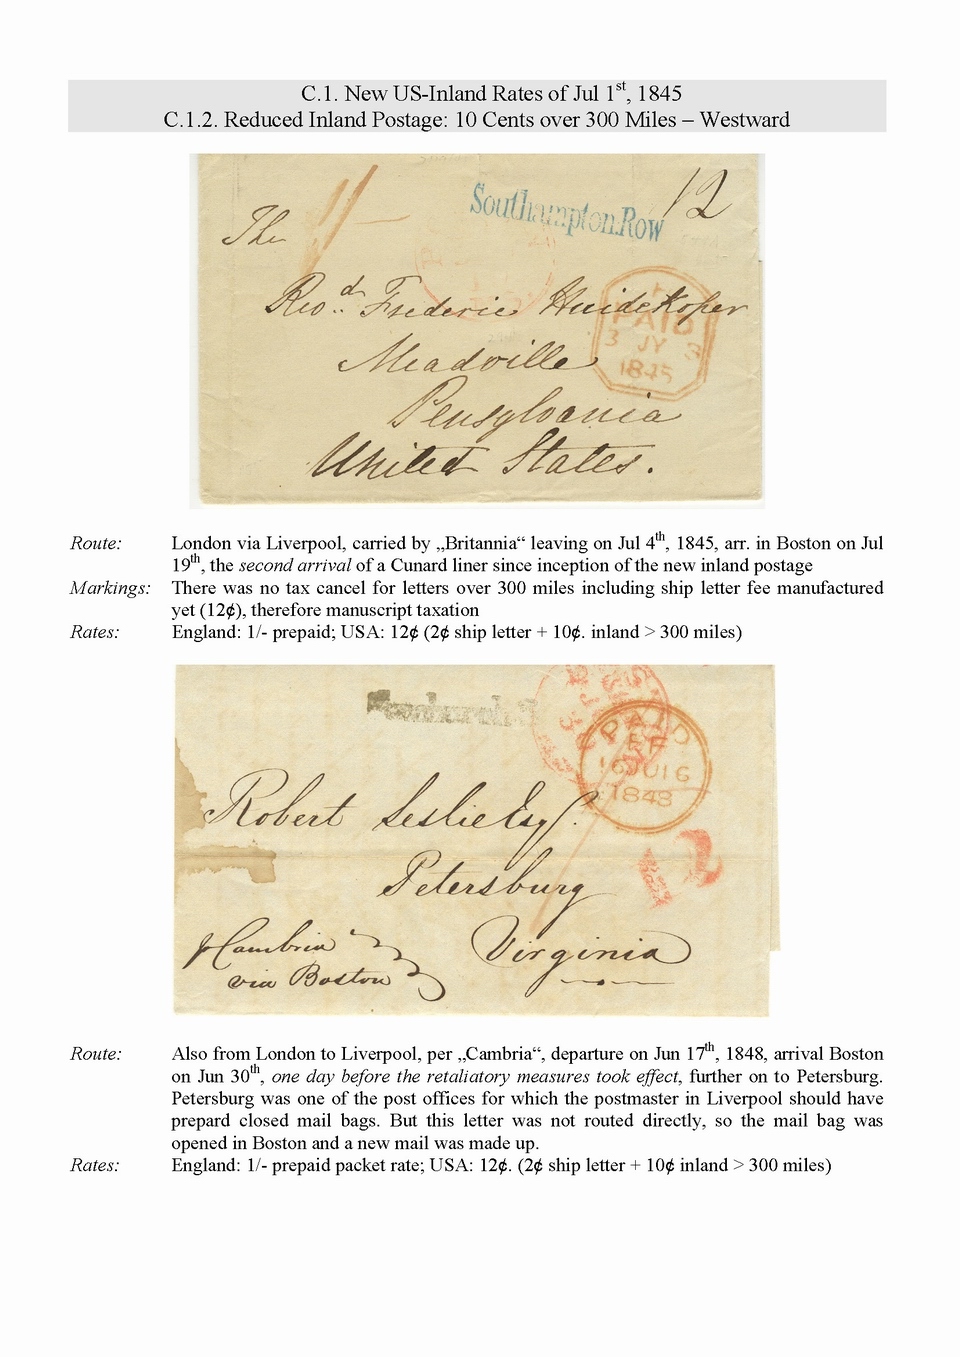 C.1. New US-Inland Rates of Jul 1st, 1845
C.1.2. Reduced Inland Postage: 10 Cents over 300 Miles – Westward
Southampton.Row
12
The
PAID
3 JY 3
1845
Revd. Frederic Huidekoper
Meadville
Pensylvania
United States.
Route: London via Liverpool, carried by „Britannia“ leaving on Jul 4th, 1845, arr. in Boston on Jul
19th, the second arrival of a Cunard liner since inception of the new inland postage
Markings: There was no tax cancel for letters over 300 miles including ship letter fee manufactured
yet (12¢), therefore manuscript taxation
Rates: England: 1/- prepaid; USA: 12¢ (2¢ ship letter + 10¢. inland > 300 miles)
PAID
EF
16 JU 16
1848
Robert Leslie Esqr.
12
Petersburg
Virginia
p Cambria
via Boston
Route: Also from London to Liverpool, per „Cambria“, departure on Jun 17th, 1848, arrival Boston
on Jun 30th, one day before the retaliatory measures took effect, further on to Petersburg.
Petersburg was one of the post offices for which the postmaster in Liverpool should have
prepard closed mail bags. But this letter was not routed directly, so the mail bag was
opened in Boston and a new mail was made up.
Rates: England: 1/- prepaid packet rate; USA: 12¢. (2¢ ship letter + 10¢ inland > 300 miles)